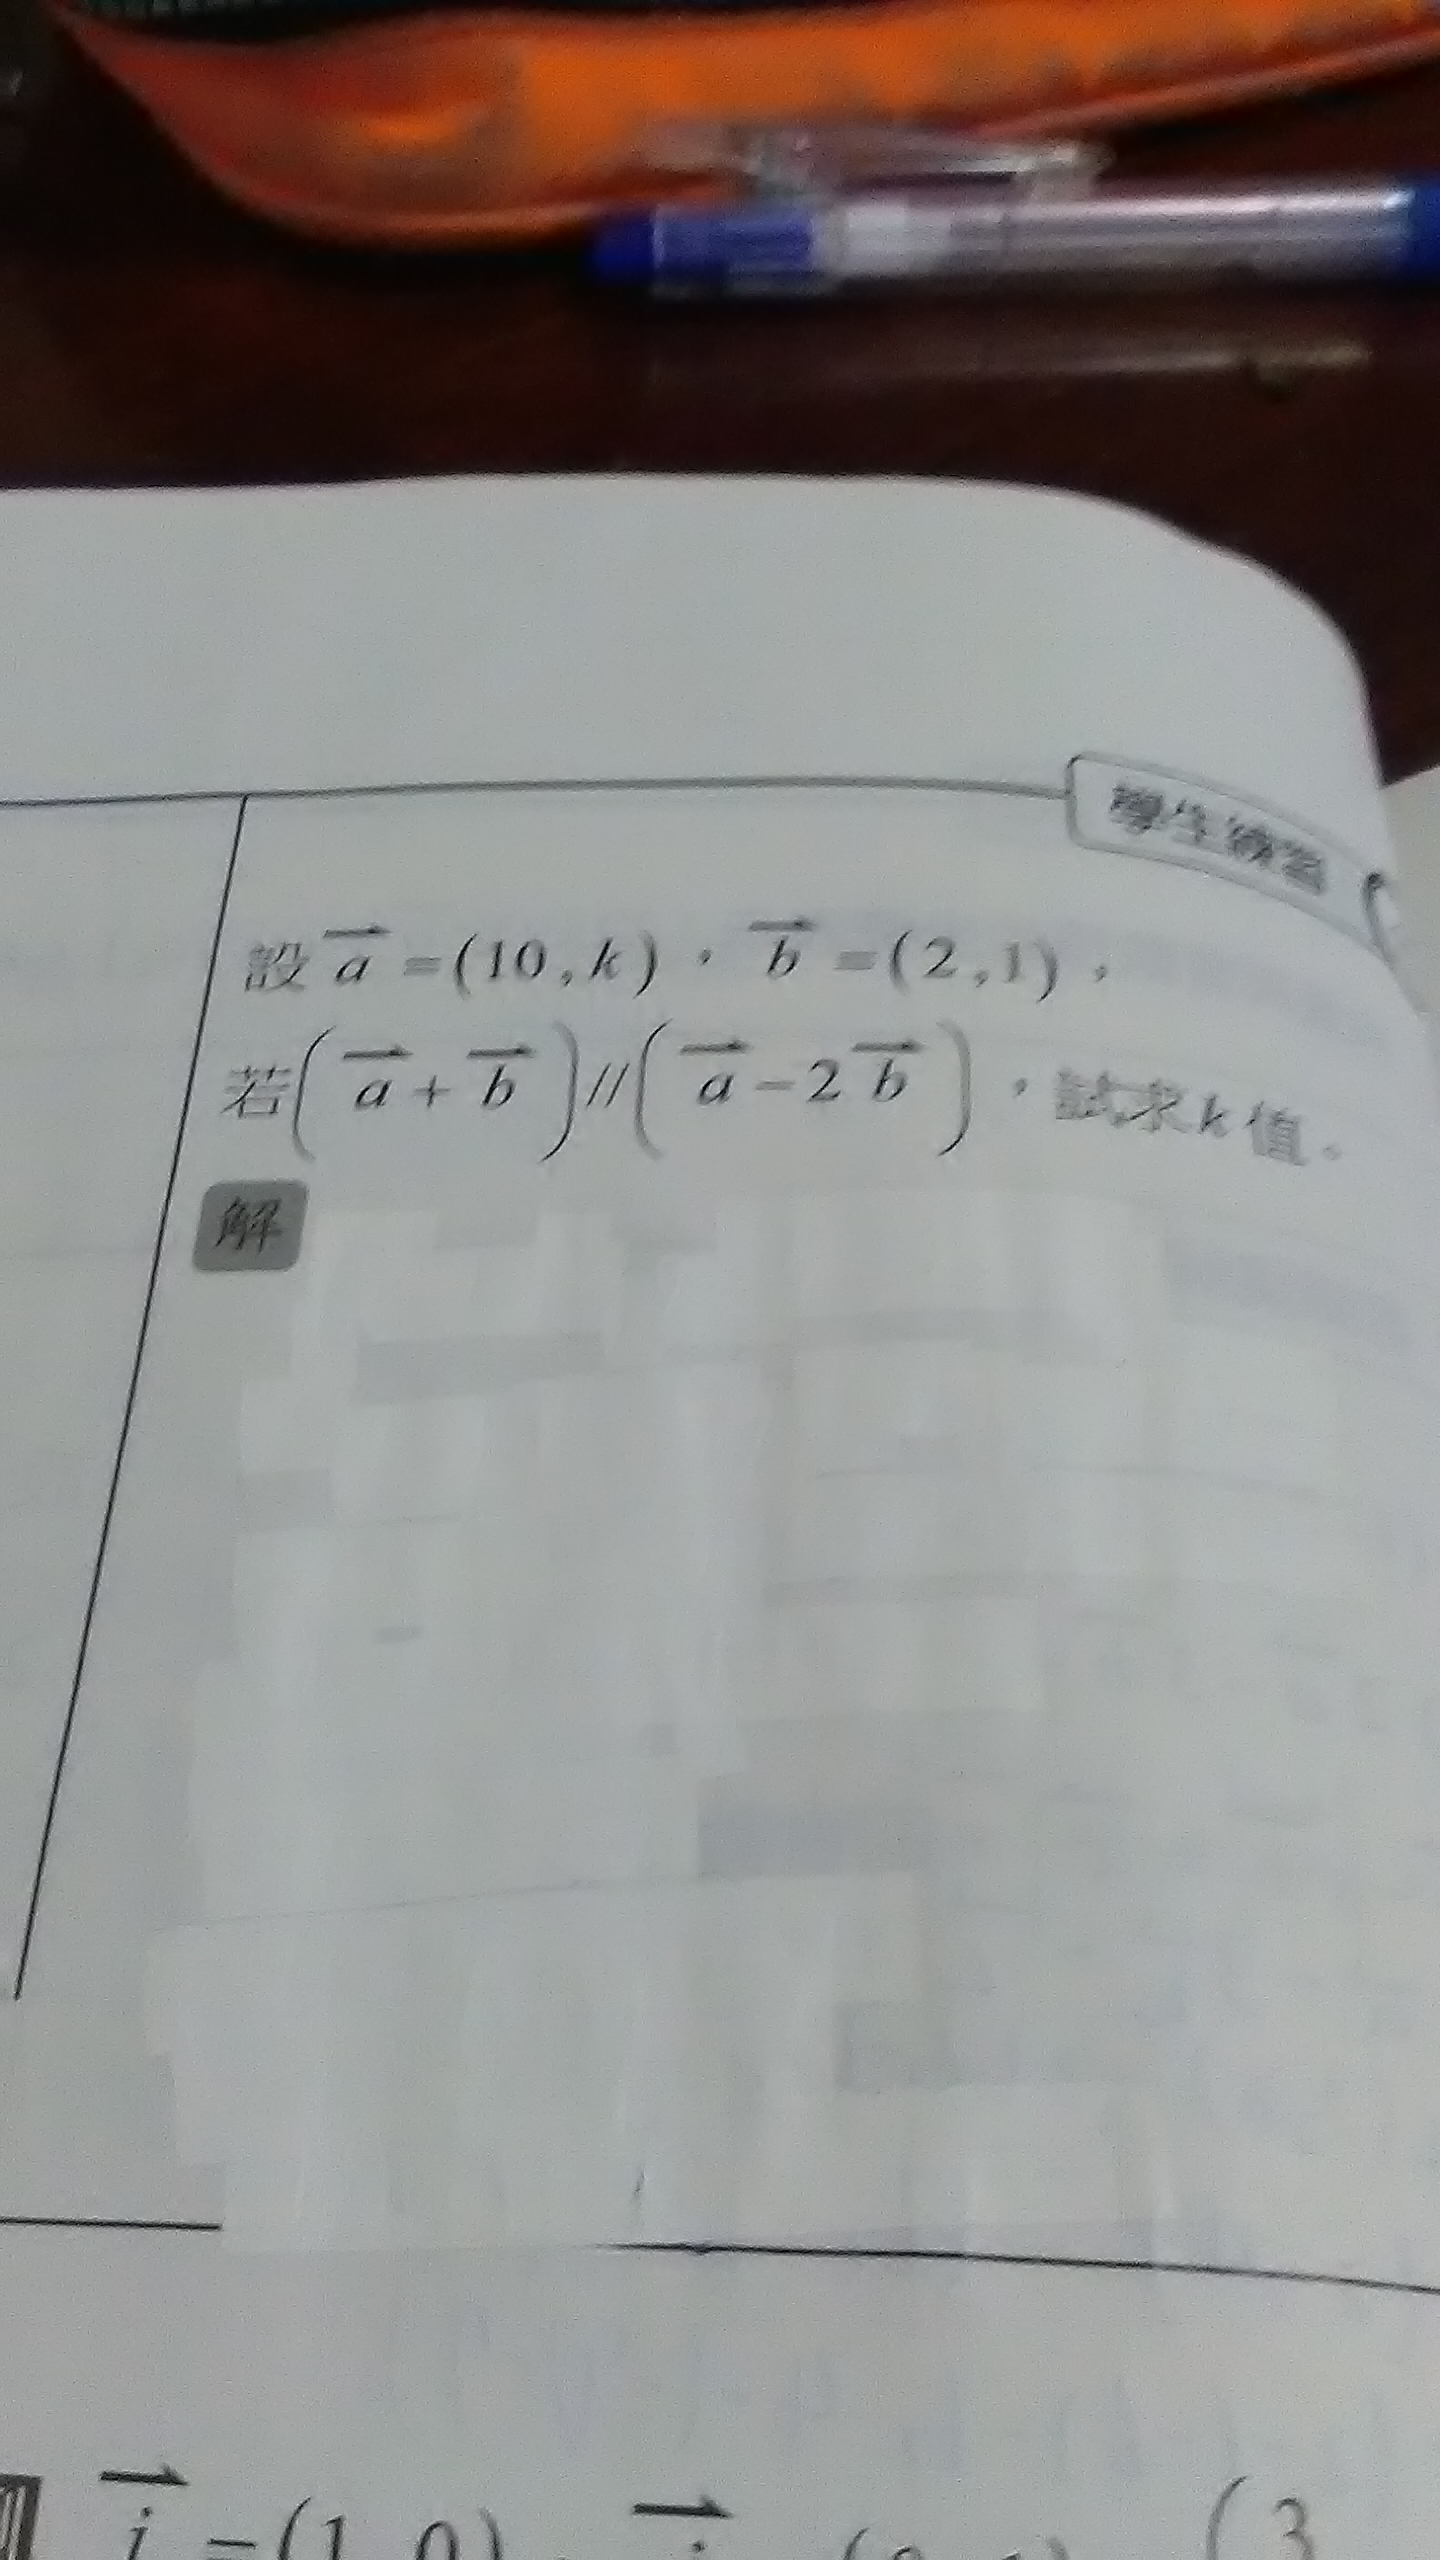 學生練習
設 a⃗ =(10,k),b⃗ =(2,1),
若( a⃗ + b⃗ )//( a⃗ -2 b⃗ ),試求k值。
解
i⃗ =(1,0)
(3